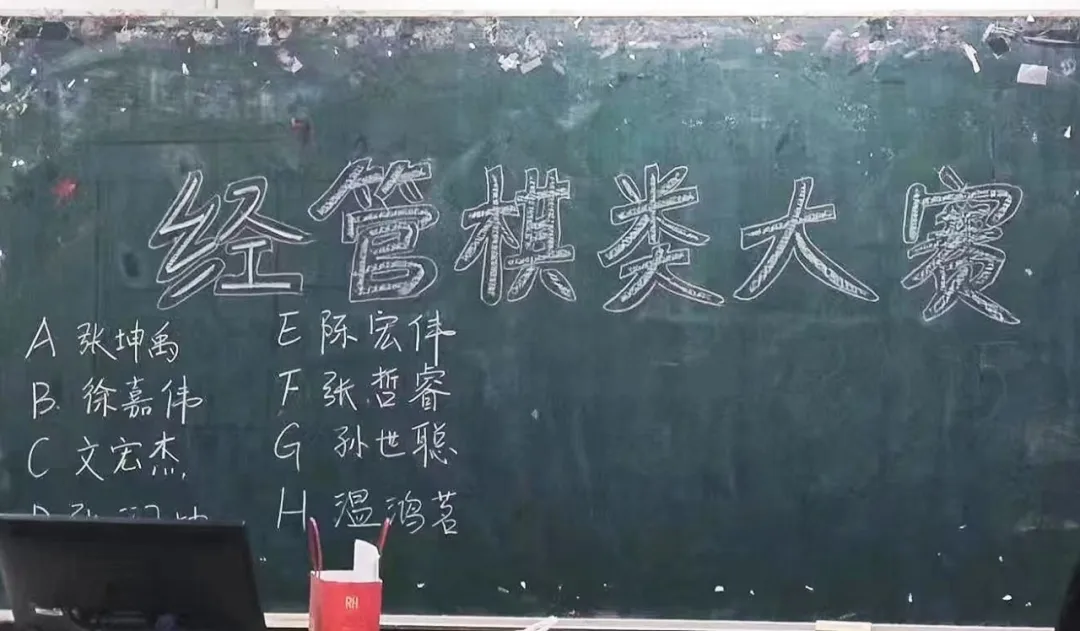 经管棋类大赛
A 张坤禹
B. 徐嘉伟
C 文宏杰
D 张
E 陈宏伟
F 张哲睿
G 孙世聪
H 温鸿茗
RH